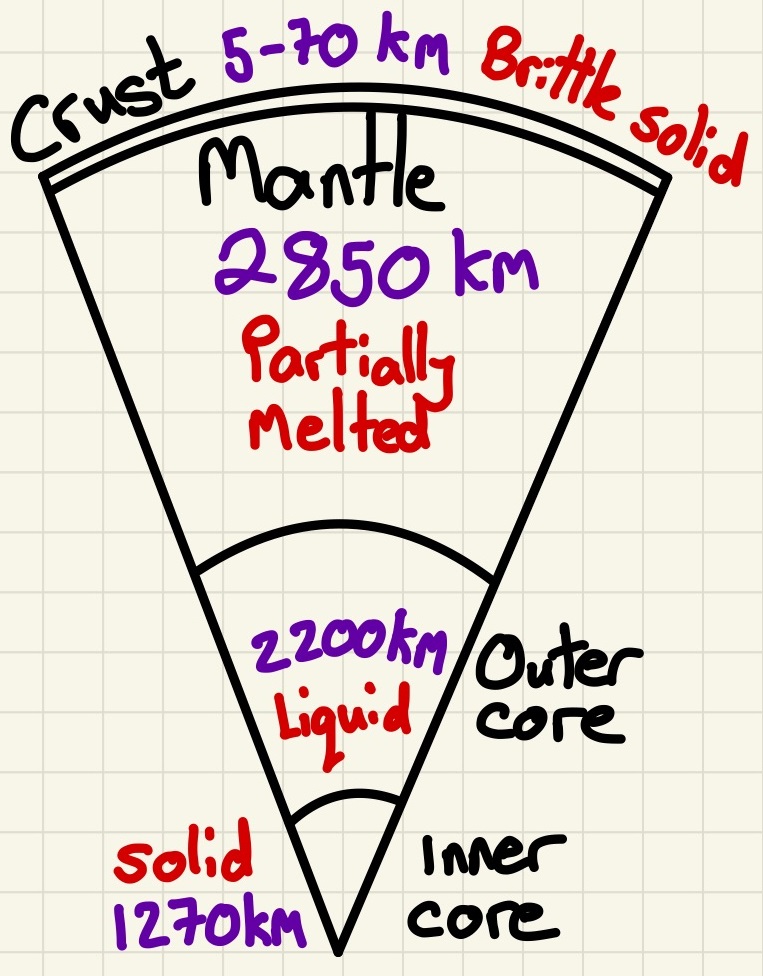 Crust 5-70 km Brittle solid
Mantle
2850 km
Partially
Melted
2200km
Liquid
Outer
core
solid
1270km
Inner
core